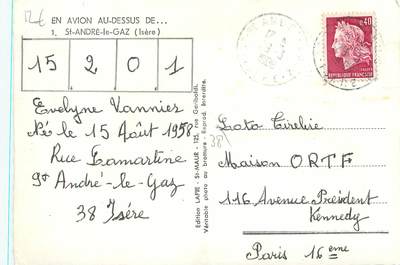 12€
EN AVION AU-DESSUS DE...
1. St-ANDRÉ-le-GAZ (Isère)
15201
Evelyne Vannier
Né le 15 Août 1958
Rue Lamartine
St André-le-Gaz
38 Isère
Edition LAPIE - St-MAUR - 125, rue Garibaldi.
Véritable photo au bromure - Reprod. interdite.
0,40
REPUBLIQUE FRANCAISE
38
Loto Tirelire
Maison ORTF
116 Avenue Président
Kennedy
Paris 16eme